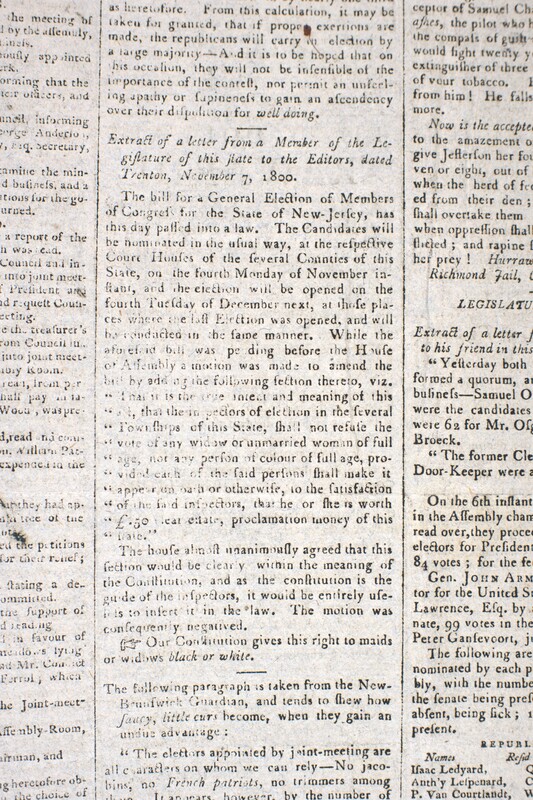 the meeting of
by the assembly,
appointed
orming that the
their officers, and
uncil, informing
y, Esq. Secretary,
xamine the min-
d business, and a
ations for the go-
urned.
a report of the
was read.
Council and in-
into joint meet-
President and
nd request Coun-
eeting.
e the treasurer's
from Council in-
into joint meet-
bly Room.
half pay
was pre-
d, read and com-
on. William Pat-
expended in the
they had ap-
of the
ed the petitions
for their relief;
stating a de-
ommitted.
the support of
d reading
in favour of
meadows lying
ad Mr. Condict
Ferrol; which
he Joint-meet-
Assembly-Room,
airman, and
ng heretofore ob-
the choice of
as heretofore. From this calculation, it may be
taken for granted, that if proper exertions are
made, the republicans will carry the election by
a large majority—And it is to be hoped that on
this occasion, they will not be insensible of the
importance of the contest, nor permit an unfeel-
ing apathy or supineness to gain an ascendency
over their disposition for well doing.
Extract of a letter from a Member of the Le-
gislature of this state to the Editors, dated
Trenton, November 7, 1800.
The bill for a General Election of Members
of Congress for the State of New-Jersey, has
this day passed into a law. The Candidates will
be nominated in the usual way, at the respective
Court Houses of the several Counties of this
State, on the fourth Monday of November in-
stant, and the election will be opened on the
fourth Tuesday of December next, at those pla-
ces where the last Election was opened, and will
be conducted in the same manner. While the
aforesaid bill was pending before the House
of Assembly a motion was made to amend the
bill by adding the following section thereto, viz.
" That it is the true intent and meaning of this
" act, that the inspectors of election in the several
" Townships of this State, shall not refuse the
" vote of any widow or unmarried woman of full
" age, nor any person of colour of full age, pro-
" vided each of the said persons shall make it
" appear on oath or otherwise, to the satisfaction
" of the said inspectors, that he or she is worth
" £.50 clear estate, proclamation money of this
" state."
The house almost unanimously agreed that this
section would be clearly within the meaning of
the Constitution, and as the constitution is the
guide of the inspectors, it would be entirely use-
less to insert it in the law. The motion was
consequently negatived.
☞ Our Constitution gives this right to maids
or widows black or white.
The following paragraph is taken from the New-
Brunswick Guardian, and tends to shew how
saucy, little curs become, when they gain an
undue advantage:
" The electors appointed by joint-meeting are
all characters on whom we can rely—No jaco-
bins, no French patriots, no trimmers among
them. It appears, however, by the number of
ceptor of Samuel Ch
ashes, the pilot who h
the compass of guilt
would fight twenty y
extinguisher of three
of your tobacco.
from him! He falls
more.
Now is the accepte
to the amazement o
give Jefferson her fou
ven or eight, out of
when the herd of fe
ed from their den;
shall overtake them
when oppression shall
flicted; and rapine s
her prey! Hurraw
Richmond Jail,
LEGISLATU
Extract of a letter f
to his friend in this
" Yesterday both
formed a quorum, an
business—Samuel O
were the candidates
were 62 for Mr. Osg
Broeck.
" The former Cle
Door-Keeper were a
On the 6th instant
in the Assembly cham
read over, they procee
electors for President
84 votes; for the fe
Gen. JOHN ARM
tor for the United S
Lawrence, Esq. by
nate, 99 votes in the
Peter Gansevoort, ju
The following are
nominated by each p
bly, with the numbe
the senate being pres
absent, being sick; 1
present.
REPUBL
Names Resid
Isaac Ledyard, Q
Anth'y Lespenard, C
P. Van Courtlandt, W